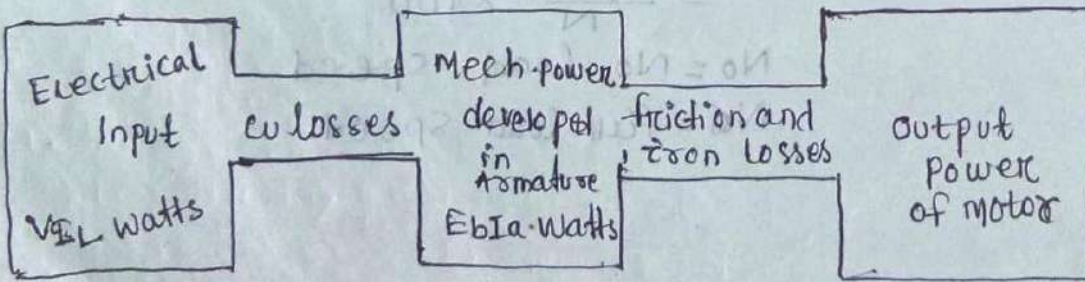 Electrical
Input
VIL watts
cu losses
Mech.power
developed
in
Armature
EbIa.Watts
friction and
iron losses
output
power
of motor